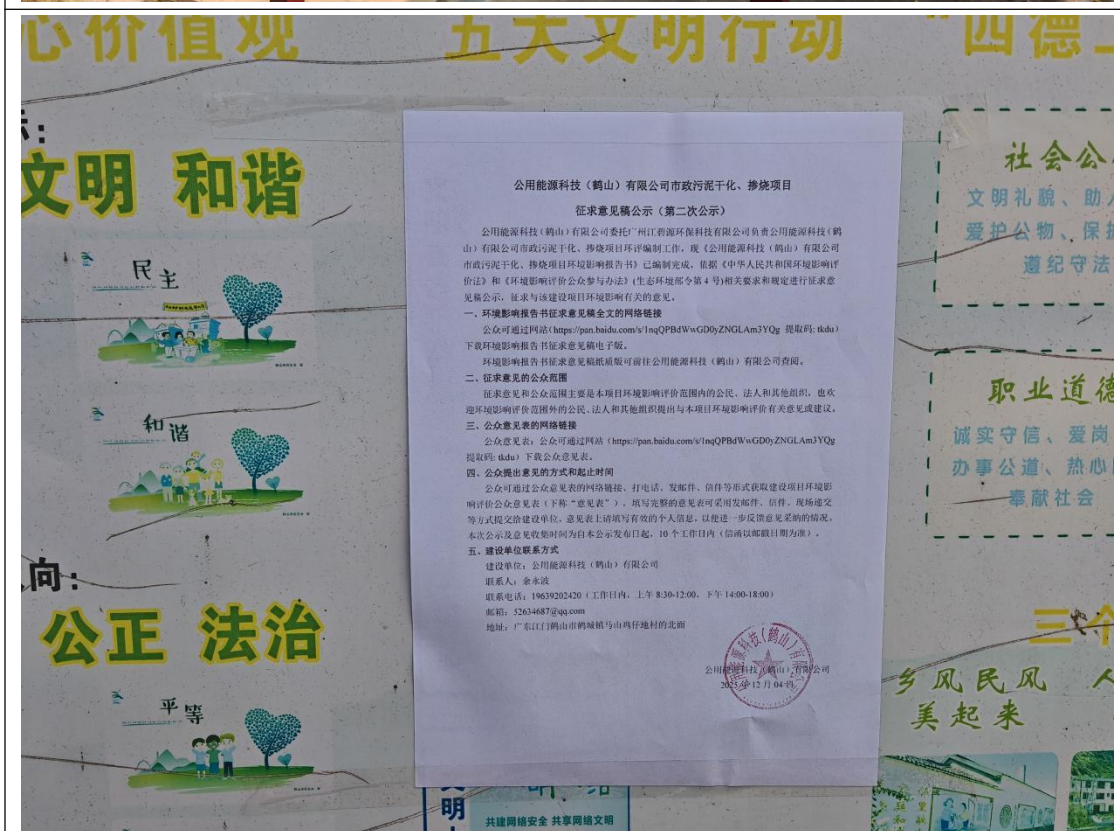 心价值观
五大文明行动
“四德
文明 和谐
民主
和谐
向：
公正 法治
平等
公用能源科技（鹤山）有限公司市政污泥干化、掺烧项目
征求意见稿公示（第二次公示）
公用能源科技（鹤山）有限公司委托广州江碧源环保科技有限公司负责公用能源科技（鹤
山）有限公司市政污泥干化、掺烧项目环评编制工作，现《公用能源科技（鹤山）有限公司
市政污泥干化、掺烧项目环境影响报告书》已编制完成，依据《中华人民共和国环境影响评
价法》和《环境影响评价公众参与办法》(生态环境部令第 4 号)相关要求和规定进行征求意
见稿公示，征求与该建设项目环境影响有关的意见。
一、环境影响报告书征求意见稿全文的网络链接
公众可通过网站（https://pan.baidu.com/s/1nqQPBdWwGD0yZNGLAm3YQg 提取码: tkdu）
下载环境影响报告书征求意见稿电子版。
环境影响报告书征求意见稿纸质版可前往公用能源科技（鹤山）有限公司查阅。
二、征求意见的公众范围
征求意见和公众范围主要是本项目环境影响评价范围内的公民、法人和其他组织，也欢
迎环境影响评价范围外的公民、法人和其他组织提出与本项目环境影响评价有关意见或建议。
三、公众意见表的网络链接
公众意见表：公众可通过网站（https://pan.baidu.com/s/1nqQPBdWwGD0yZNGLAm3YQg
提取码: tkdu）下载公众意见表。
四、公众提出意见的方式和起止时间
公众可通过公众意见表的网络链接、打电话、发邮件、信件等形式获取建设项目环境影
响评价公众意见表（下称“意见表”），填写完整的意见表可采用发邮件、信件、现场递交
等方式提交给建设单位，意见表上请填写有效的个人信息，以便进一步反馈意见采纳的情况。
本次公示及意见收集时间为自本公示发布日起，10 个工作日内（信函以邮戳日期为准）。
五、建设单位联系方式
建设单位：公用能源科技（鹤山）有限公司
联系人：余永波
联系电话：19639202420（工作日内，上午 8:30-12:00，下午 14:00-18:00）
邮箱：52634687@qq.com
地址：广东江门鹤山市鹤城镇马山鸡仔地村的北面
公用能源科技（鹤山）有限公司
2025 年 12 月 04 日
社会公
文明礼貌、助
爱护公物、保护
遵纪守法
职业道德
诚实守信、爱岗
办事公道、热心
奉献社会
三个
乡风民风
美起来
共建网络安全 共享网络文明